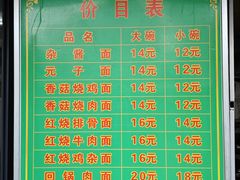 价目表
品名 大碗 小碗
杂酱面 14元 12元
元子面 14元 12元
香菇烧鸡面 14元 12元
香菇烧肉面 14元 12元
红烧排骨面 16元 14元
红烧牛肉面 16元 14元
红烧鸡杂面 16元 14元
回锅肉面 20元 18元